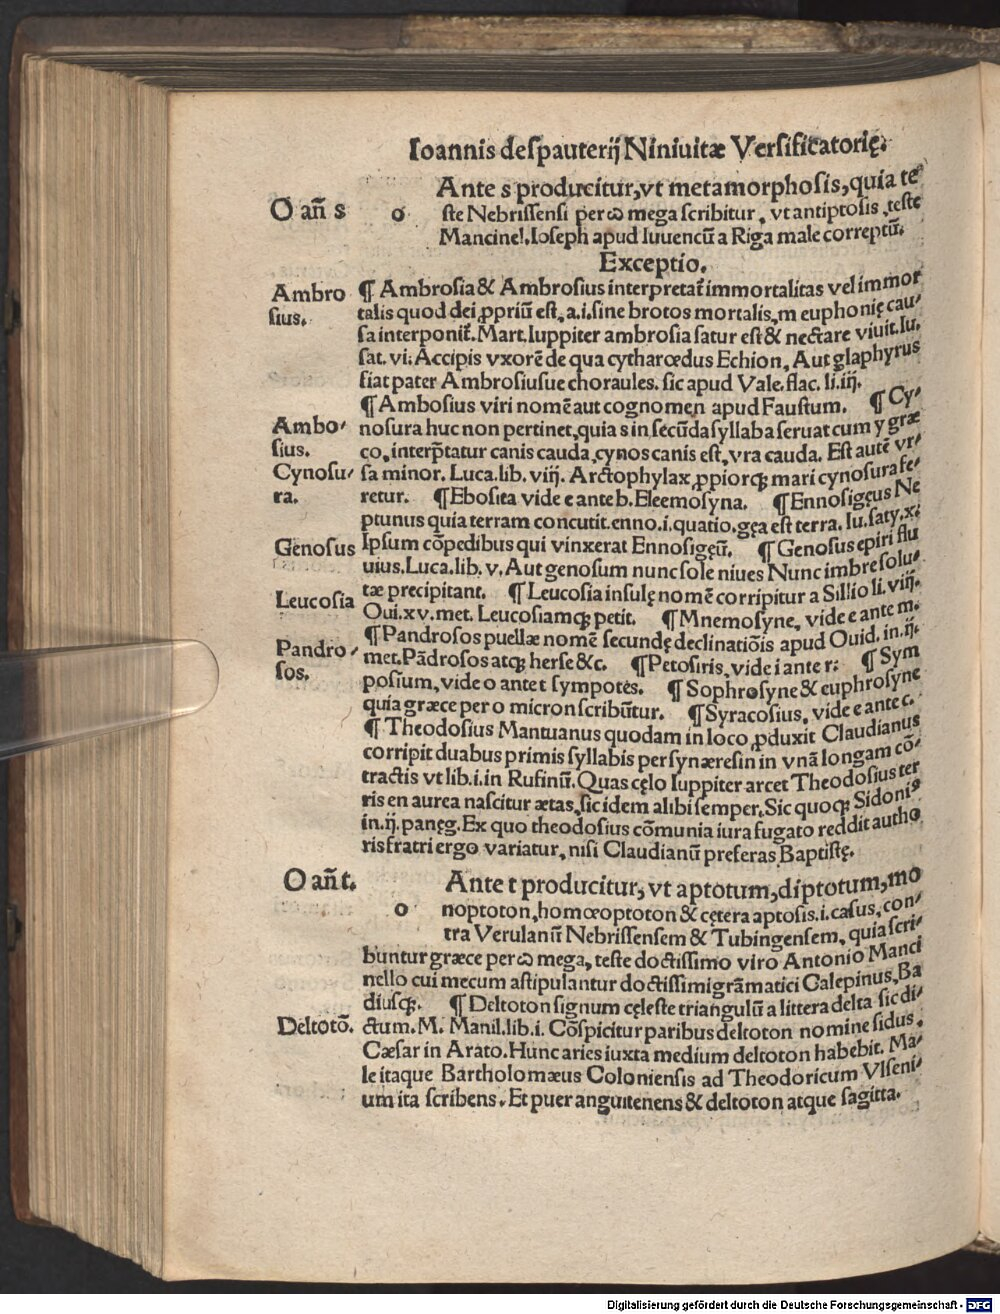 Ioannis despauterij Niniuitæ Versificatorię.
O añ s
o
Ante s producitur, vt metamorphosis, quia te
ste Nebrissensi per ω mega scribitur, vt antiptosis, teste
Mancinel. Ioseph apud Iuuencũ a Riga male correptũ.
Exceptio.
Ambro
sius.
¶ Ambrosia & Ambrosius interpretat̃ immortalitas vel immor
talis quod dei ꝓpriũ est, a .i. sine brotos mortalis, m euphonię cau⸗
sa interponit̃. Mart. Iuppiter ambrosia satur est & nectare viuit. Iu.
sat. vi: Accipis vxorẽ de qua cytharœdus Echion, Aut glaphyrus
fiat pater Ambrosiusue choraules. sic apud Vale. flac. li. iij.
¶ Ambosius viri nomẽ aut cognomen apud Faustum. ¶ Cy⸗
Ambo⸗
sius.
nosura huc non pertinet, quia s in secũda syllaba seruat cum y græ
co, interp̃tatur canis cauda, cynos canis est, vra cauda. Est autẽ vr⸗
Cynosu⸗
ra.
sa minor. Luca. lib. viij. Arctophylax, ꝓpiorqꝫ mari cynosura fe⸗
retur. ¶ Ebosita vide e ante b. Eleemosyna. ¶ Ennosigęus Ne
ptunus quia terram concutit. enno .i. quatio. gęa est terra. Iu. saty. x.
Genosus
Ipsum cõpedibus qui vinxerat Ennosigęũ. ¶ Genosus epiri flu
uius. Luca. lib. v. Aut genosum nunc sole niues Nunc imbre solu⸗
Leucosia
tæ precipitant. ¶ Leucosia insulę nomẽ corripitur a Sillio li. viij.
Oui. xv. met. Leucosiamqꝫ petit. ¶ Mnemosyne, vide e ante m.
Pandro⸗
sos.
¶ Pandrosos puellæ nomẽ secundę declinatiõis apud Ouid. in. ij.
met. Pãdrosos atqꝫ herse &c. ¶ Petosiris, vide i ante r: ¶ Sym
posium, vide o ante t sympotes. ¶ Sophrosyne & euphrosyne
quia græce per o micron scribũtur. ¶ Syracosius, vide e ante c.
¶ Theodosius Mantuanus quodam in loco, ꝓduxit Claudianus
corripit duabus primis syllabis per synæresin in vnã longam cõ⸗
tractis vt lib. i. in Rufinũ. Quas cęlo Iuppiter arcet Theodosius ter
ris en aurea nascitur ætas, sic idem alibi semper. Sic quoqꝫ Sidoniꝰ
in. ij. paneg. Ex quo theodosius cõmunia iura fugato reddit autho
ris fratri ergo variatur, nisi Claudianũ preferas Baptistę.
O añ t.
o
Ante t producitur, vt aptotum, diptotum, mo
noptoton, homœoptoton & cętera a ptosis .i. casus, con⸗
tra Verulanũ Nebrissensem & Tubingensem, quia scri⸗
buntur græce per ω mega, teste doctissimo viro Antonio Manci
nello cui mecum astipulantur doctissimi grãmatici Calepinus, Ba
Deltotõ.
diusqꝫ. ¶ Deltoton signum cęleste triangulũ a littera delta sic di⸗
ctum. M. Manil. lib. i. Cõspicitur paribus deltoton nomine sidus.
Cæsar in Arato. Hunc aries iuxta medium deltoton habebit. Ma⸗
le itaque Bartholomæus Coloniensis ad Theodoricum Vlseni⸗
um ita scribens. Et puer anguitenens & deltoton atque sagitta.
Digitalisierung gefördert durch die Deutsche Forschungsgemeinschaft - DFG